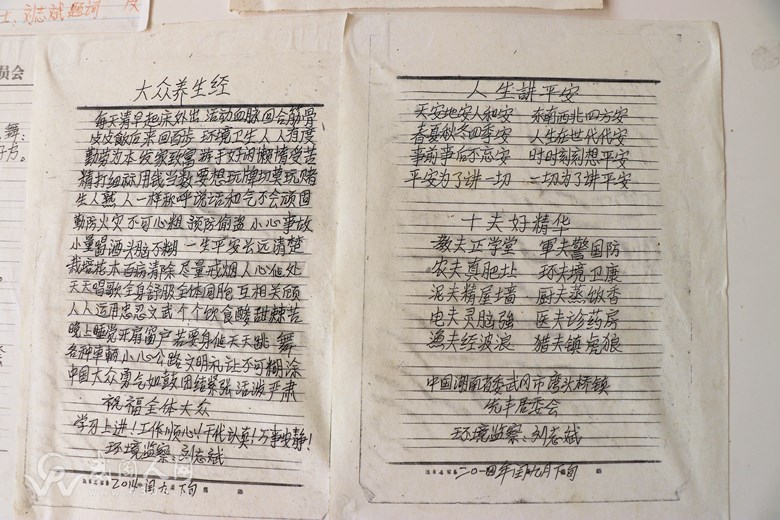 士、刘志斌题词
员会
舞:
大众养生经
每天清早起床外出 运动血脉回合筋骨
皮皮飯后来回百步 环境卫生人人有度
勤劳为本 发家致富 游手好闲懒惰受苦
精打细标用钱当数 要想玩牌切莫玩赌
生人熟人一样称呼 说话和气不会顽固
勤防火灾不可心粗 预防偷盗小心事故
小量留酒头脑不糊 一生平安长远清楚
栽培花木百病清除 尽量戒烟人心佢处
天天唱歌全身舒服 全体同胞互相关顾
人人运用忍忍文武 个个饮食酸甜辣苦
晚上睡觉开扇窗户 若要身健天天跳舞
各种车辆小心公路 文明礼让不可糊涂
中国大众勇气如鼓 团结紧张活泼严肃
祝福全体大众
学习上进！工作顺心！干代认真！万事安静！
环境监察：刘志斌
2014年国九下旬
人生講平安
天安地安人和安 东南西北四方安
春夏秋冬四季安 人生在世代代安
事前事后不忘安 时时刻刻想平安
平安为了讲一切 一切为了讲平安
十夫好精华
教夫正学堂 軍夫警国防
农夫真肥土 环夫境卫康
泥夫精屋墙 厨夫蒸饭香
电夫灵脑强 医夫诊药房
漁夫经波浪 猎夫镇虎狼
中国湖南省委武冈市湾头桥镇
先丰居委会
环境监察：刘志斌
二〇一四年国九月下旬
武冈人网